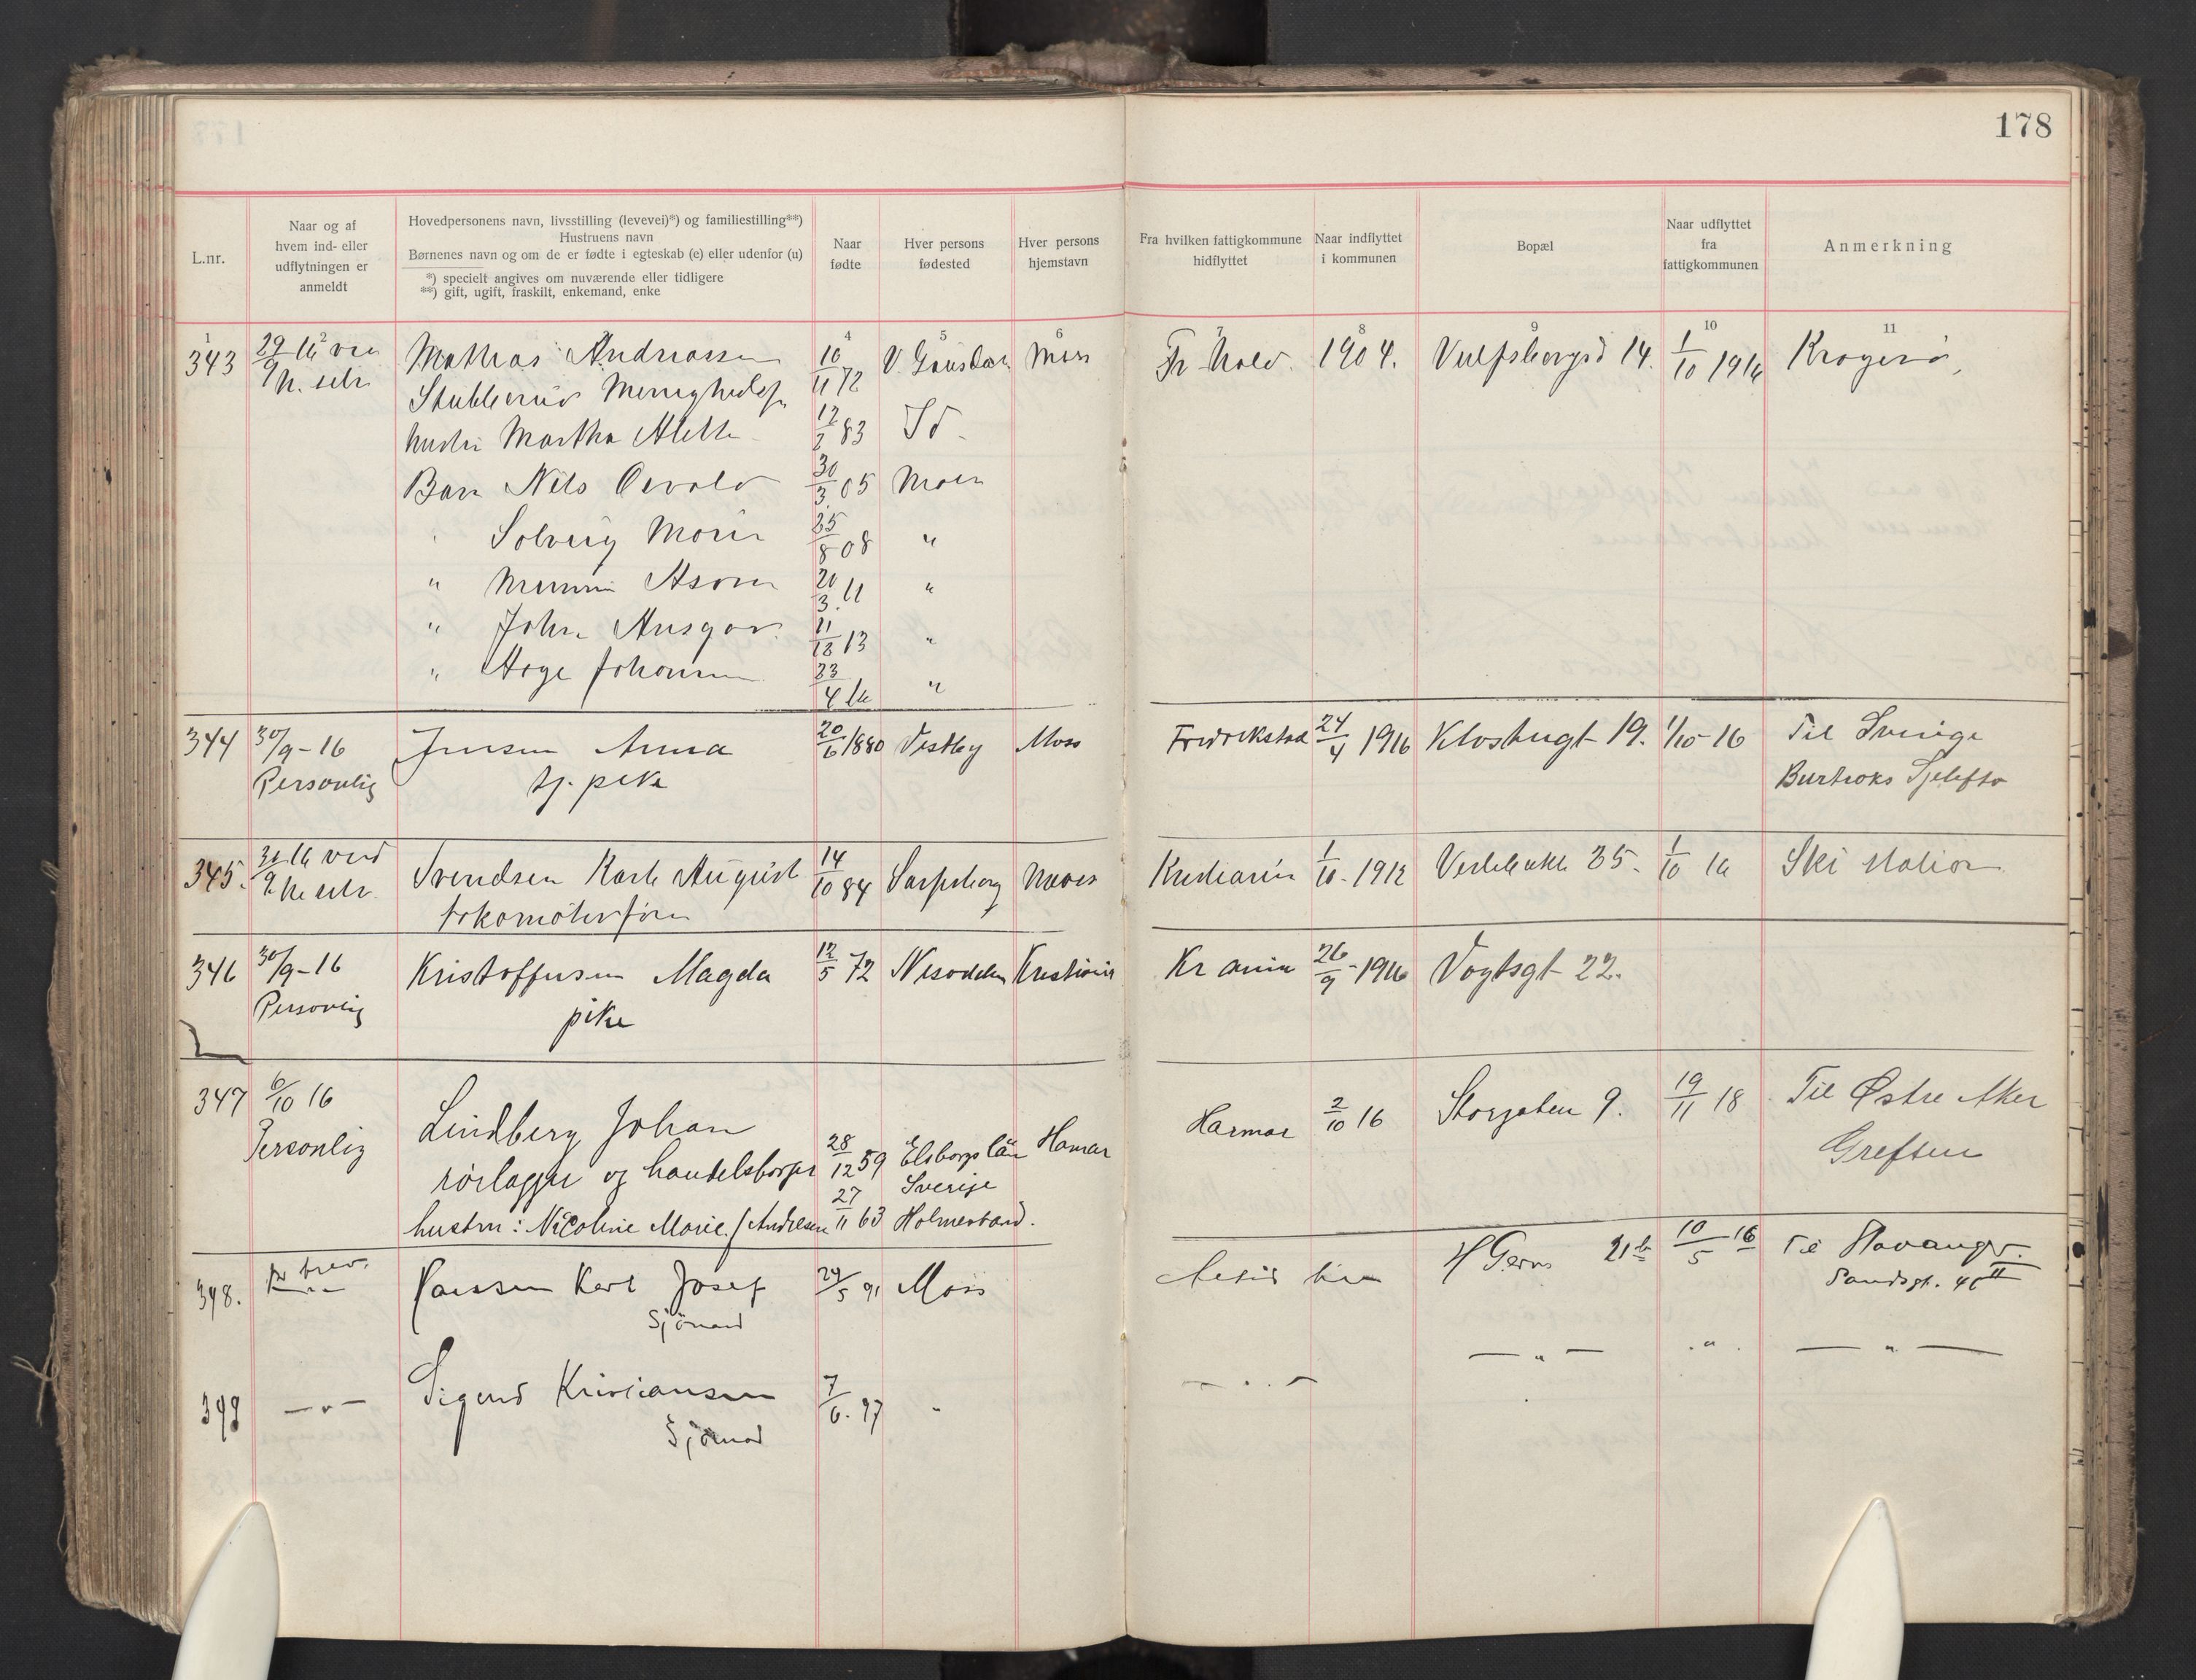 178
L.nr.
Naar og af
hvem ind- eller
udflytningen er
anmeldt
Hovedpersonens navn, livsstilling (levevei)*) og familiestilling**)
Hustruens navn
Børnenes navn og om de er fødte i egteskab (e) eller udenfor (u)
*) specielt angives om nuværende eller tidligere
**) gift, ugift, fraskilt, enkemand, enke
Naar
fødte
Hver persons
fødested
Hver persons
hjemstavn
Fra hvilken fattigkommune
hidflyttet
Naar indflyttet
i kommunen
Bopæl
Naar udflyttet
fra
fattigkommunen
Anmerkning
1 2 3 4 5 6 7 8 9 10 11
343 29/9 16 Mathias Andreassen 16/11 72 Moss Fr. hald. 1904. 14. 1/10 1916 Kragerø,
Stubberud
hustru Martha Alette 12/2 83 Id
Barn Nils 30/3 05 Moss
Solveig Marie 25/8 08 "
" 20/3 11 "
" John Ansgar 11/12 13 "
" Aage Johannes 23/4 16 "
344 30/9-16 Jensen Anna 20/6 1880 Vestby Moss Fredrikstad 24/4 1916 Klostergt 19. 1/10-16 Til Sverige
Personlig tj. pike
345. 30/9 16 ved Svendsen Karl August 14/10 84 Sarpsborg Kristiania 1/10-1912 35. 1/10 16 Ski station
346 30/9-16 Kristoffersen Magda 12/5 72 Nesodden Kristiania Kr ania 26/9-1916 Vogtsgt 22.
Personlig pike
347 6/10 16 Lindberg Johan Hamar Hamar 2/10 16 Storgaten 9. 19/11 18 Til Østre Aker
Personlig rørlægger og handelsborger 28/12 59 Elsborgs län Grefsen
Sverige
hustru: Nicoline Marie f. Andresen 27/11 63 Holmestrand.
348. pr brev. Karl Josef 29/5 91 Moss Altid her 21b 10/5 16 Til Stavanger.
Sjömand Sandsgt. 40 II
349 — " — Sigurd Kristiansen 7/6. 97 " — " — — " — " — " —
Sjömand